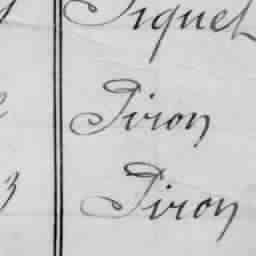 Piquet
Piron
3 Piron